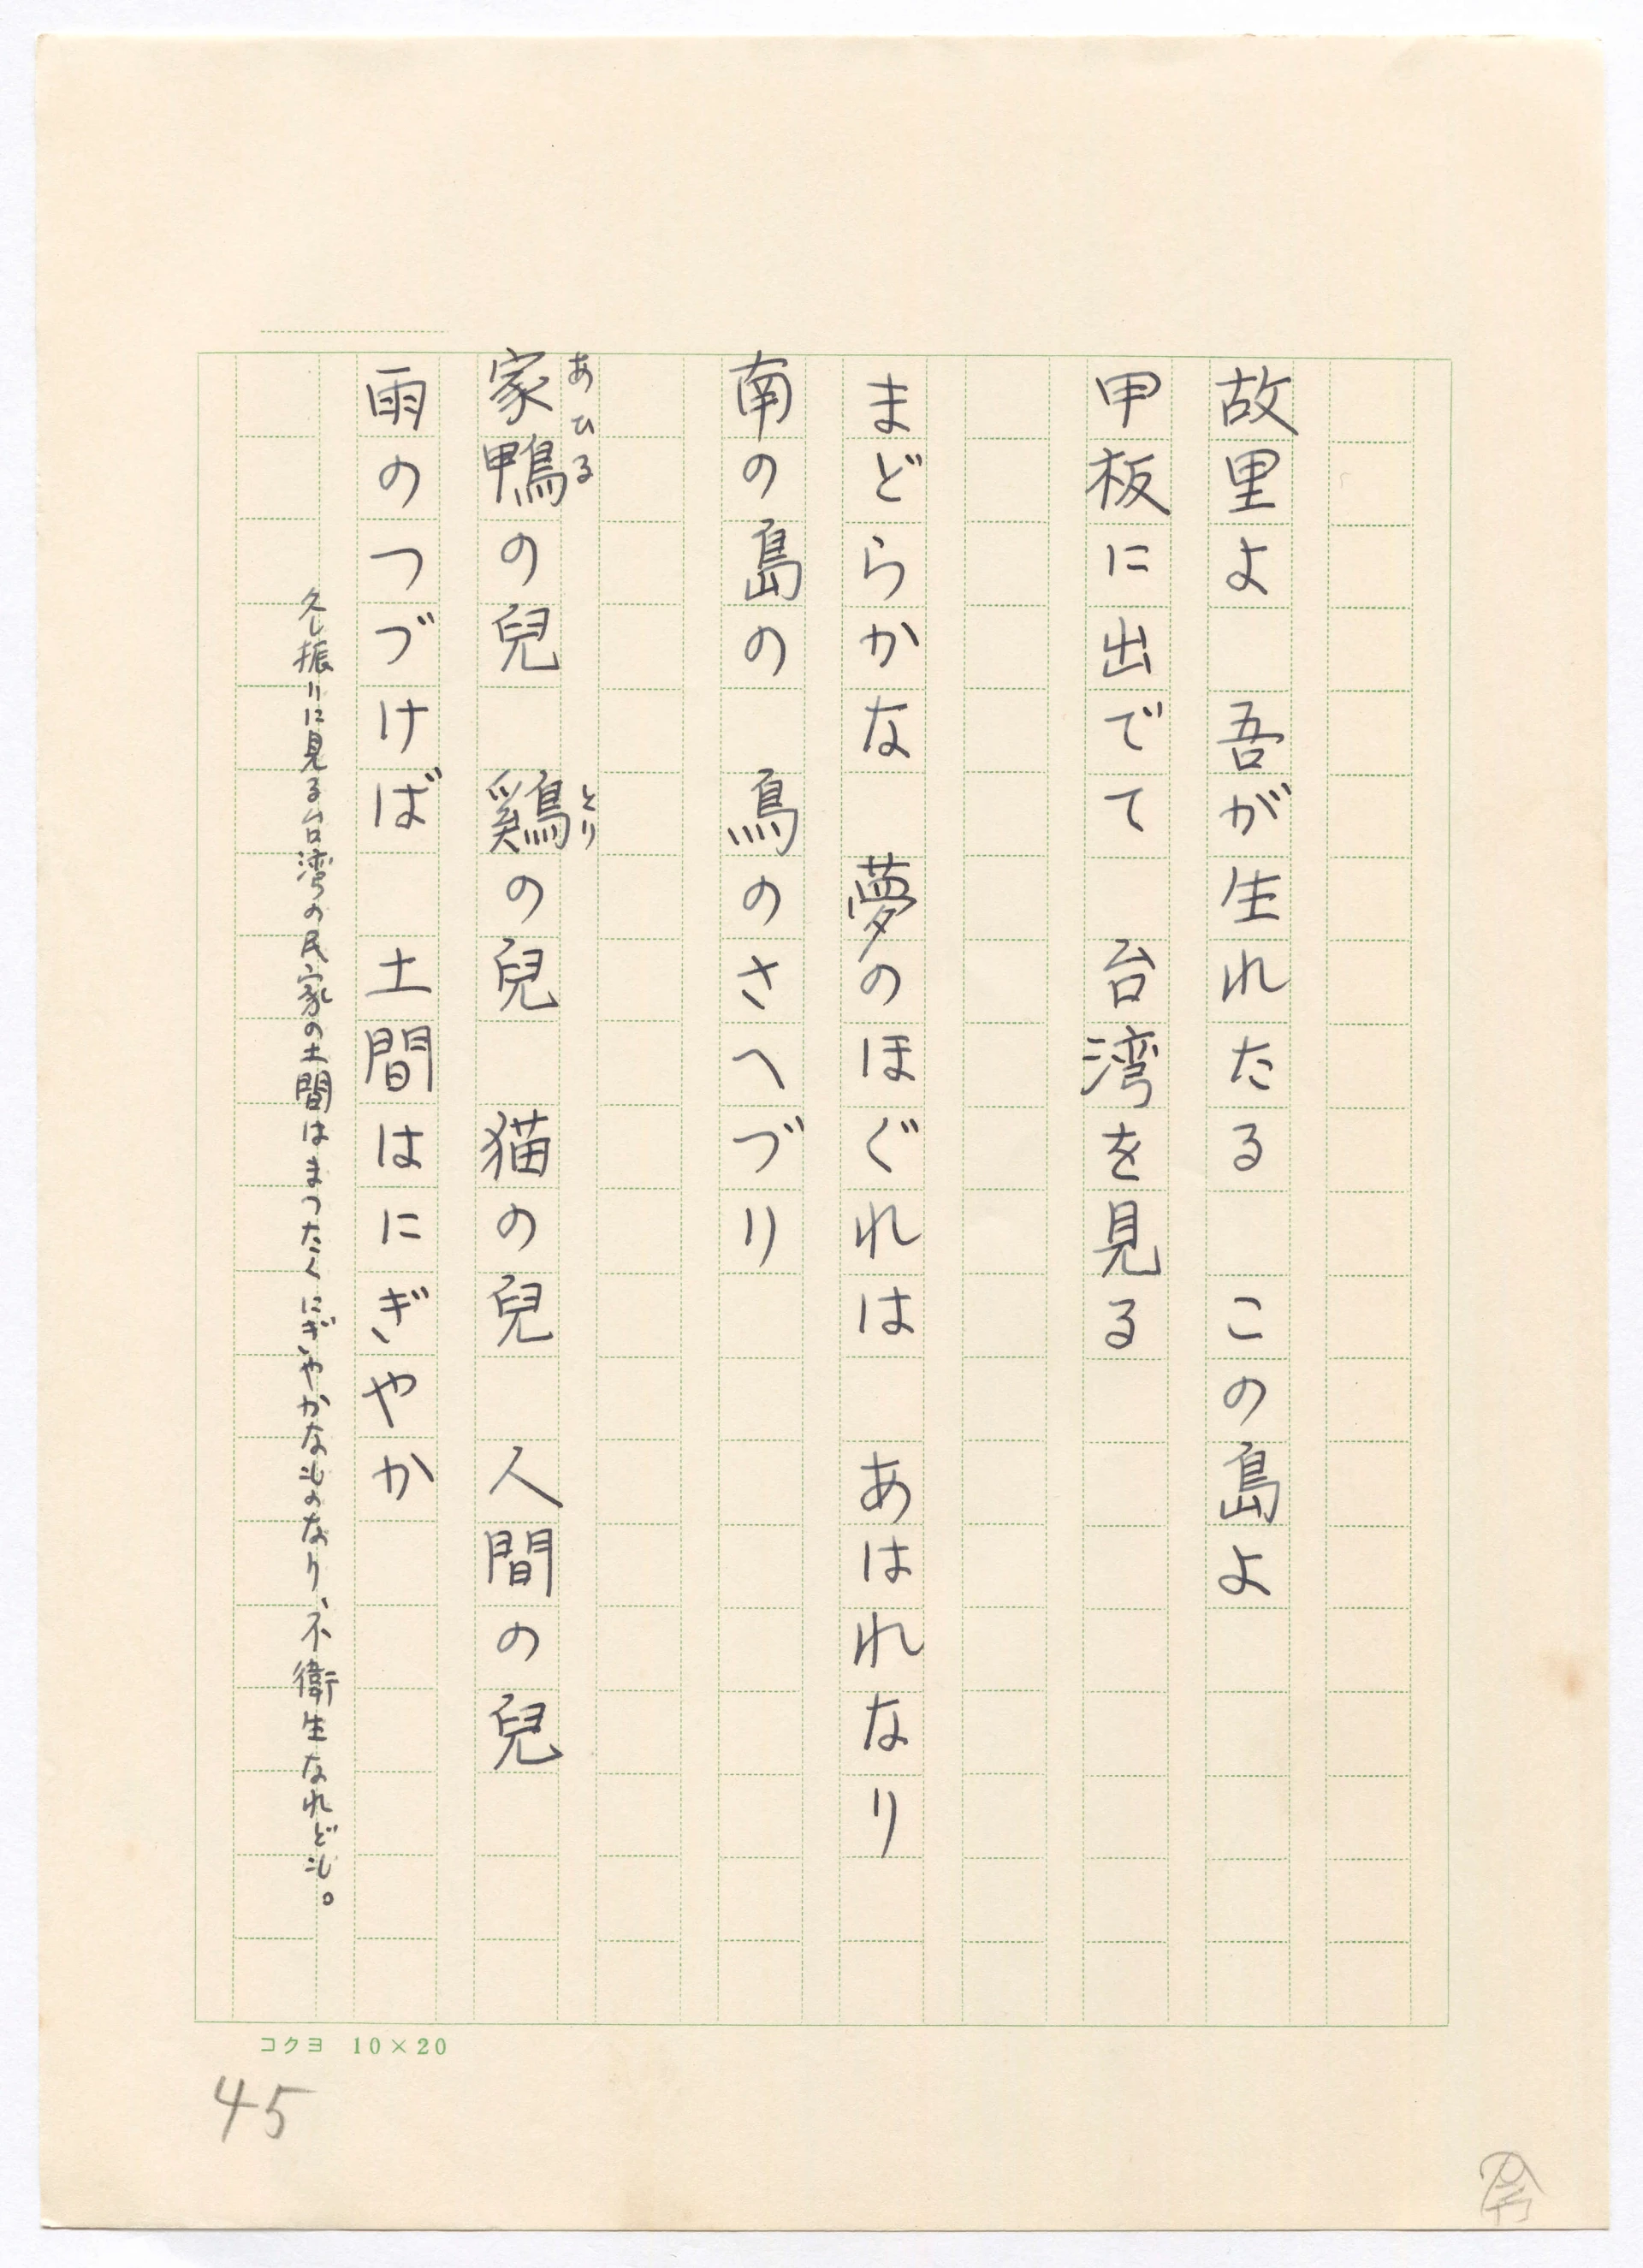 故里よ　吾が生れたる　この島よ
甲板に出でて　台湾を見る
まどらかな　夢のほぐれは　あはれなり
南の島の　鳥のさへづり
家鴨の兒　鷄の兒　猫の兒　人間の兒
あひる
とり
雨のつづけば　土間はにぎやか
久し振りに見る台湾の民家の土間はまつたくにぎやかなものなり、不衛生なれども。
コクヨ 10×20
45